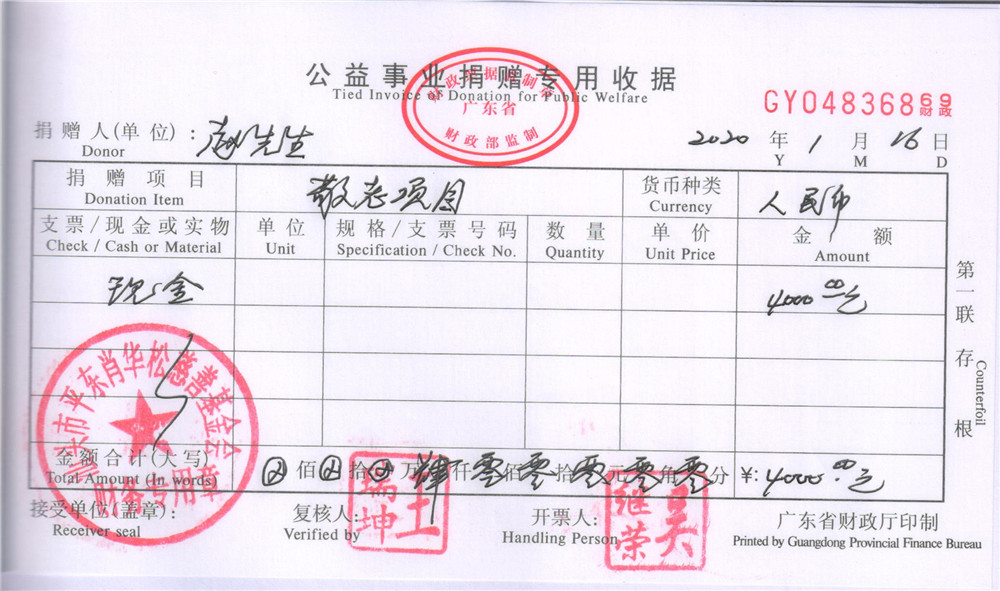 公益事业捐赠专用收据
Tied Invoice of Donation for Public Welfare
财政票据监制章
广东省
财政部监制
GY04836869
财政
捐赠人(单位): 赵先生
Donor
2020 年 1 月 16 日
Y M D
捐赠项目 敬老项目 货币种类 人民币
Donation Item Currency
支票/现金或实物 单位 规格/支票号码 数量 单价 金额
Check / Cash or Material Unit Specification / Check No. Quantity Unit Price Amount
现金 4000.00元
第一联 存根
Counterfoil
汕头市平东肖华松慈善基金会
财务专用章
金额合计(大写) 佰 拾 万 肆仟零佰零拾零元零角零分 ¥:4000.00元
Total Amount (In words)
接受单位(盖章): 复核人: 开票人: 广东省财政厅印制
Receiver seal Verified by Handling Person Printed by Guangdong Provincial Finance Bureau
王瑞坤
吴继荣